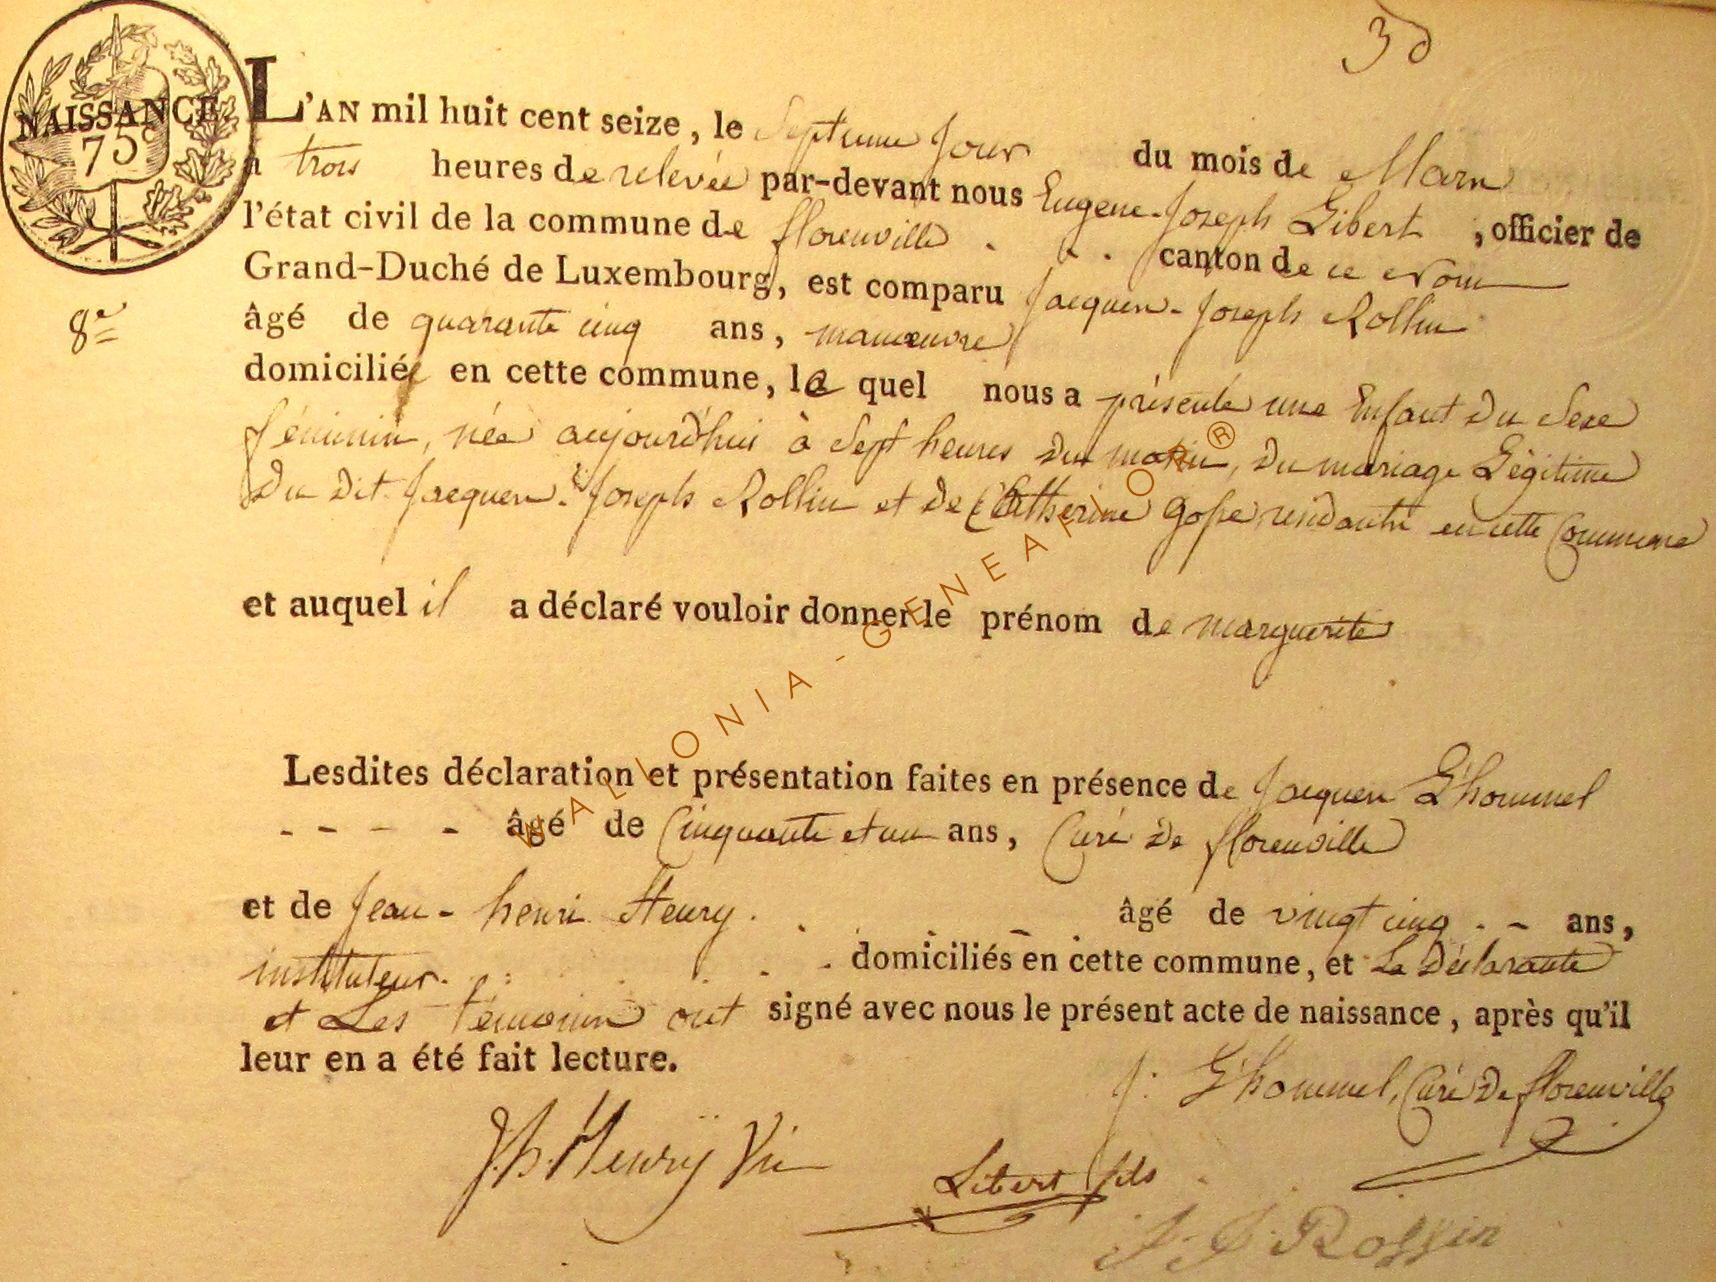 30
NAISSANCE
75c
L'AN mil huit cent seize, le Septieme jour du mois de Mars
à trois heures de relevée par-devant nous Eugene-Joseph Libert, officier de
l'état civil de la commune de florenville . . . canton de ce Nom
Grand-Duché de Luxembourg, est comparu Jacques-Joseph Rollin
8e
âgé de quarante cinq ans, manœuvre
domicilié en cette commune, le quel nous a présenté une Enfant du Sexe
féminin, née aujourd'hui à Sept heures du matin, du mariage Légitime
Du dit Jacques-Joseph Rollin et de Catherine résidante en cette Commune
et auquel il a déclaré vouloir donner le prénom de marguerite
Lesdites déclaration et présentation faites en présence de Jacques L'hommel
- - - - âgé de Cinquante et un ans, Curé de florenville
et de Jean-henri Henry . . âgé de vingt cinq - - ans,
instituteur. domiciliés en cette commune, et Le Déclarante
et Les témoins ont signé avec nous le présent acte de naissance, après qu'il
leur en a été fait lecture.
J: L'hommel, Curé de florenville
J.h. Henrÿ
Libert fils
J. J. Rossin
WALLONIA-GENEALOR®